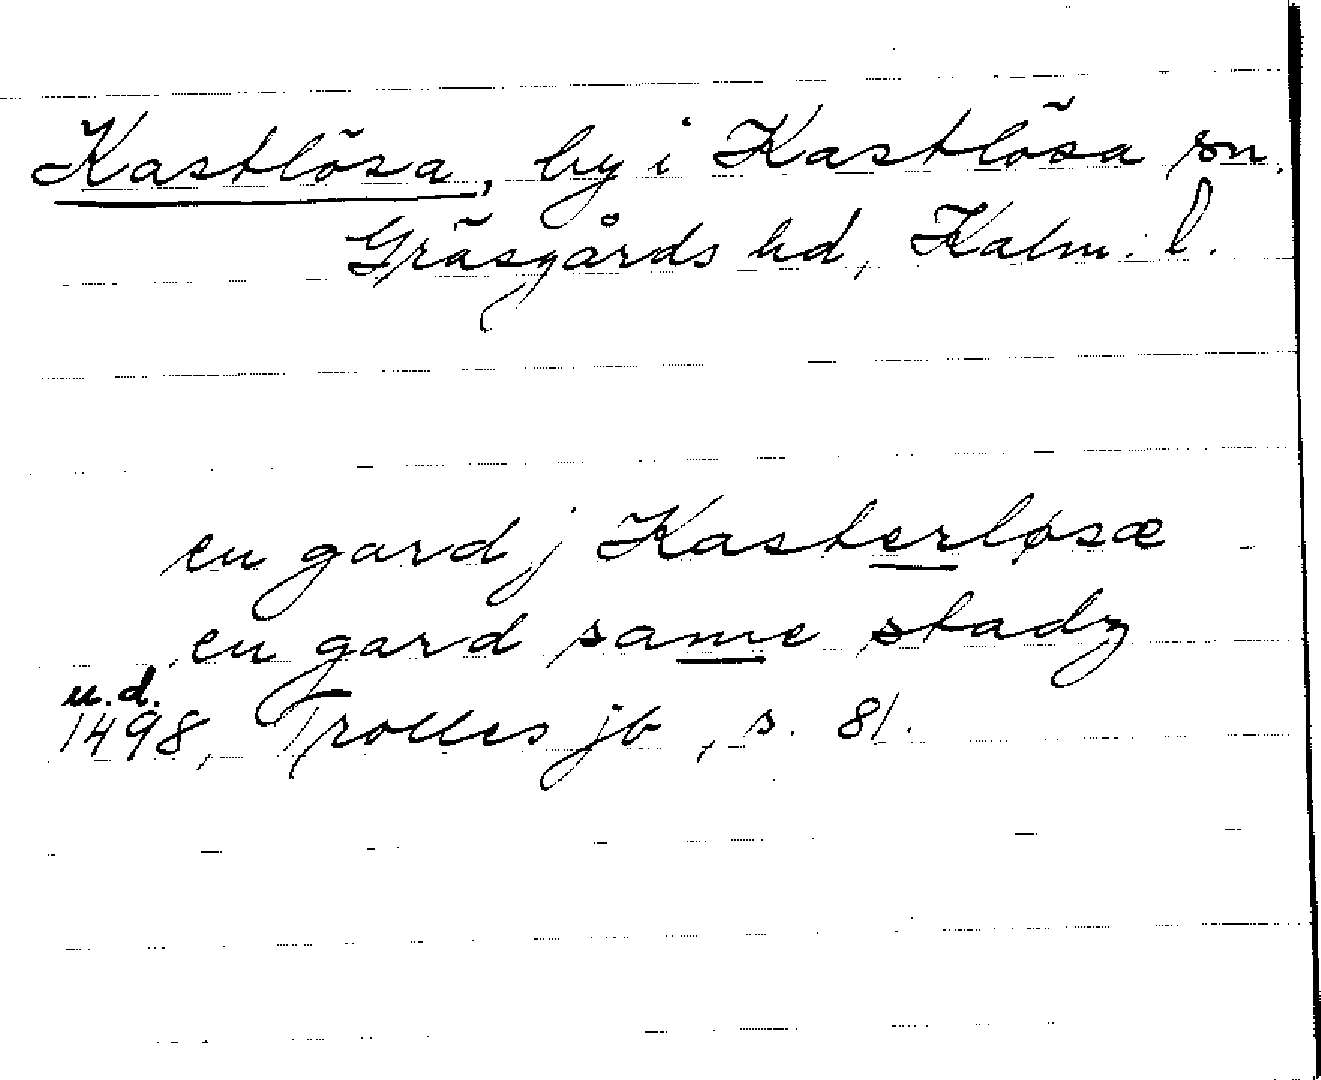 Kastlösa, by i Kastlösa sn,
Gräsgårds hd, Kalm. l.
en gard j Kasterløsæ
en gard same stadz
u.d.
1498, Trolles jb, s. 81.